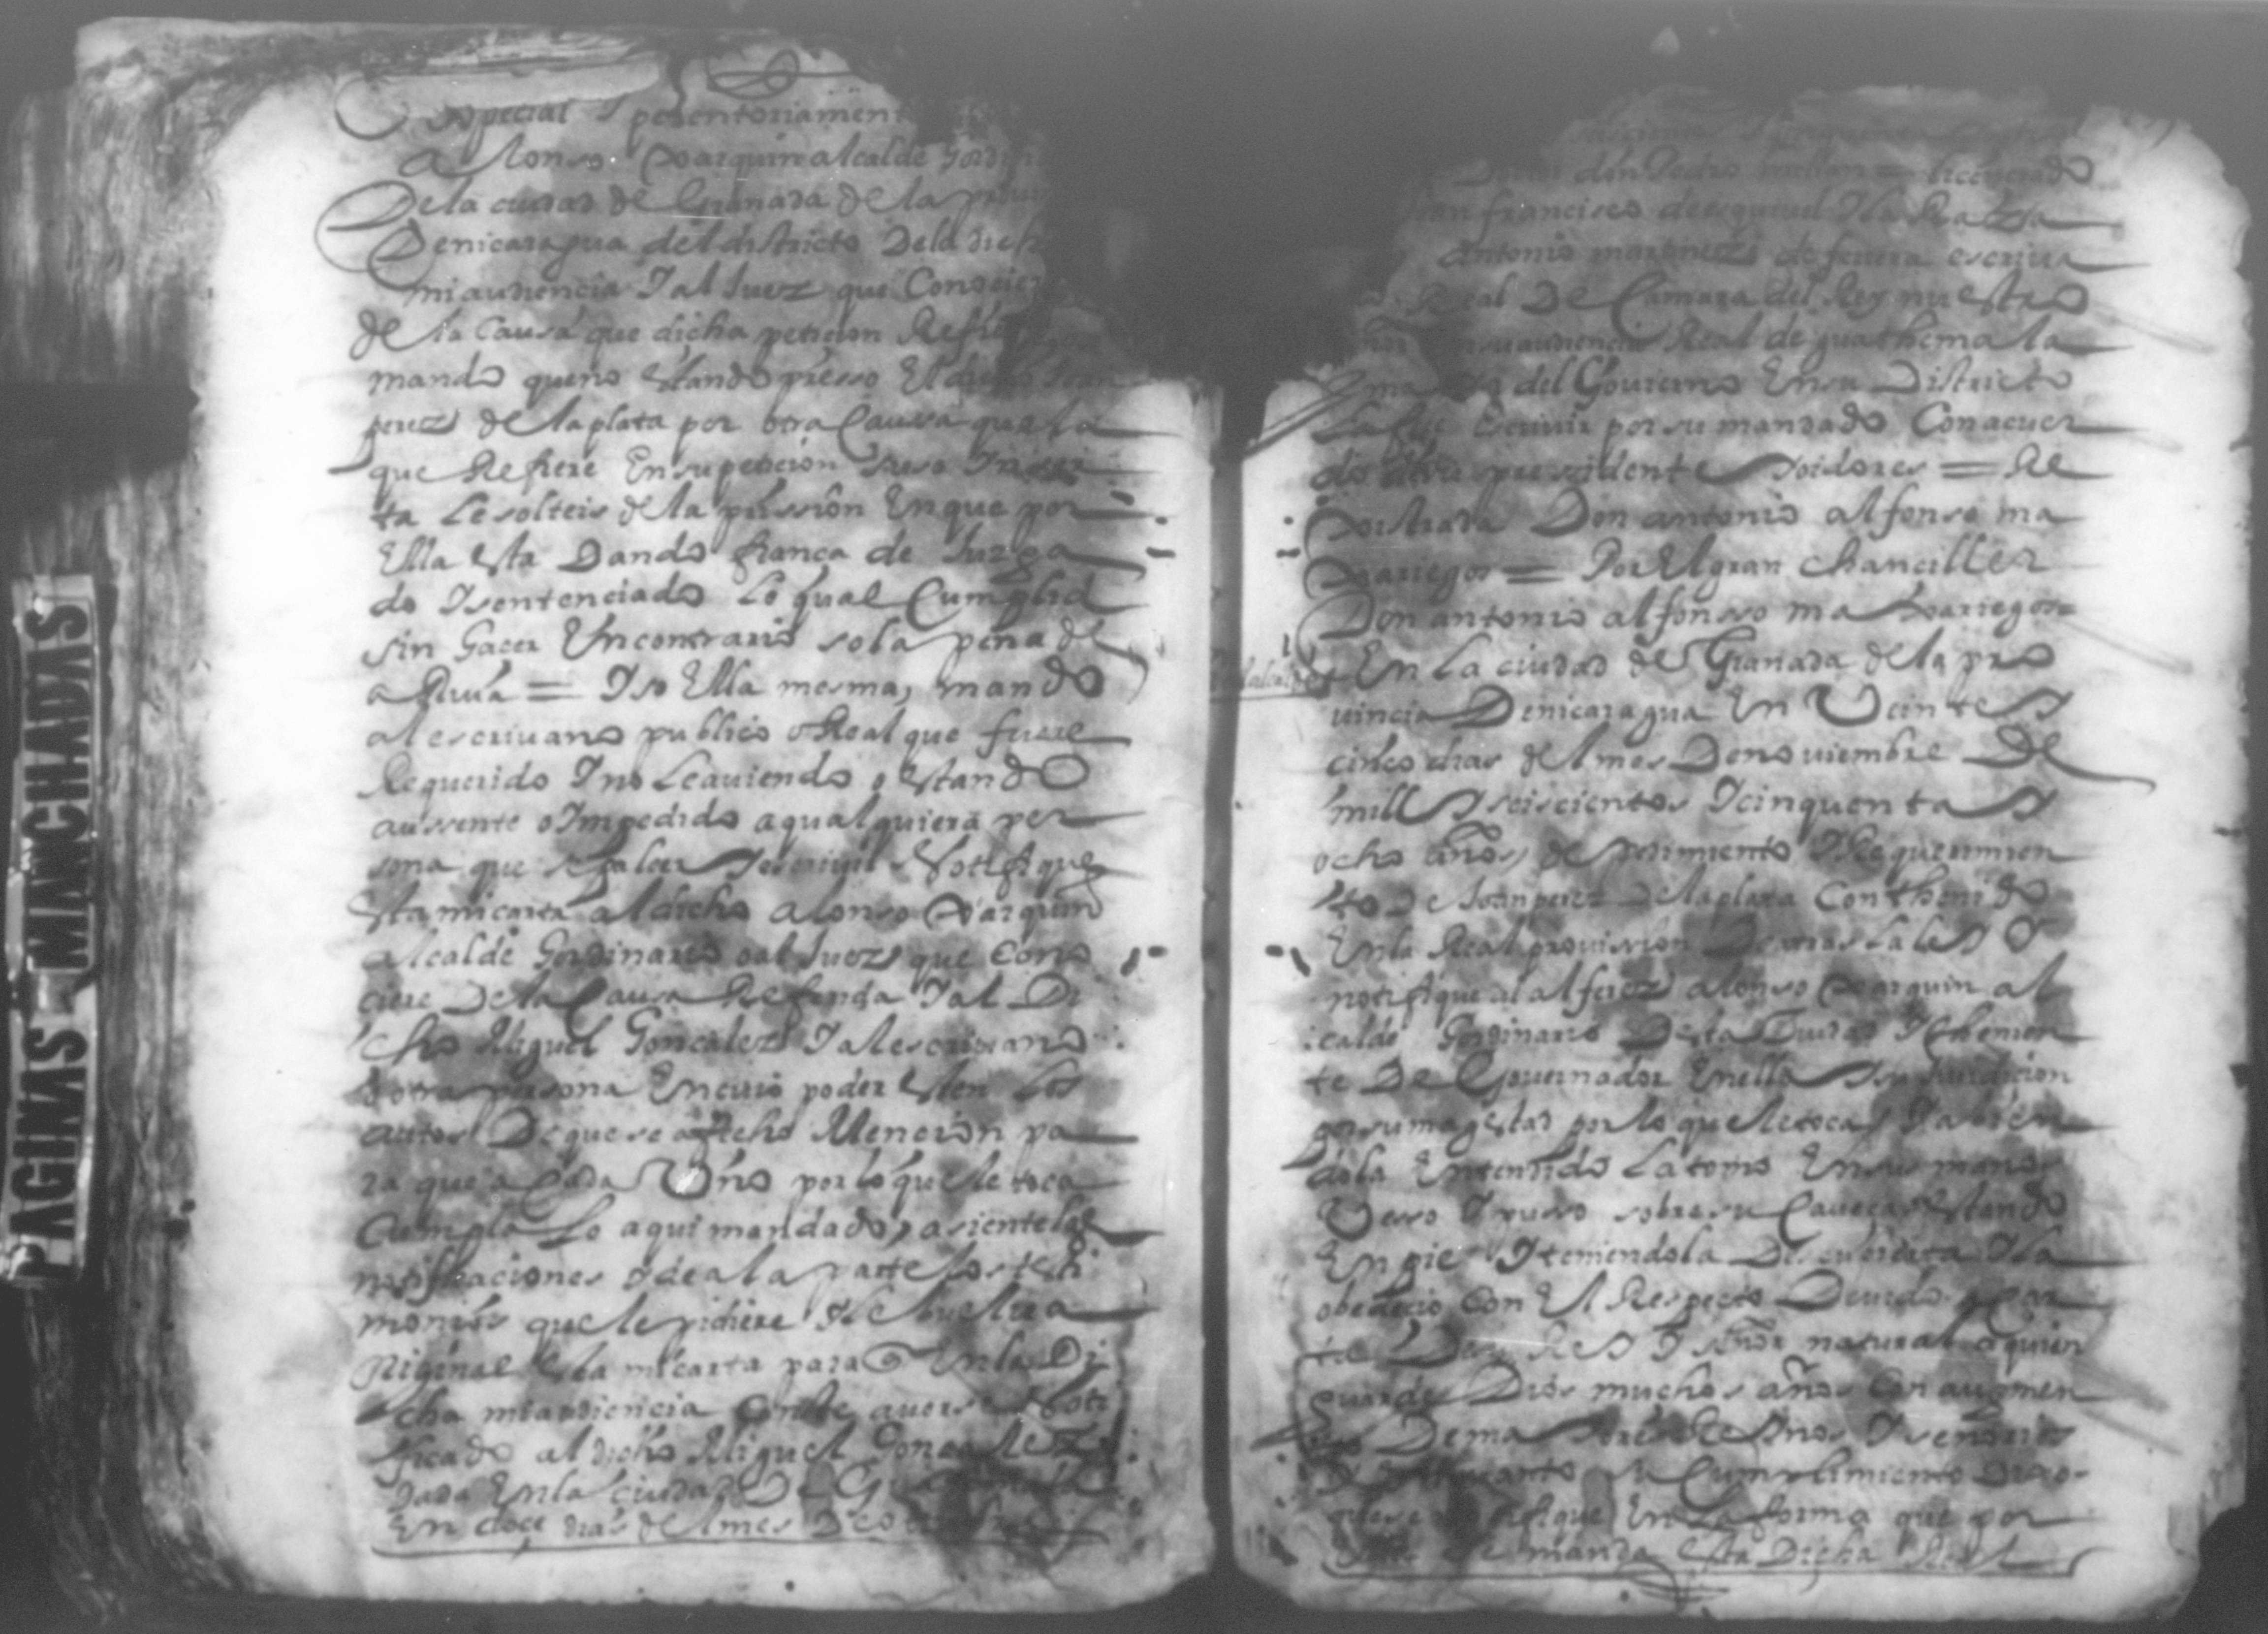 PAGINAS - MANCHADAS
especial y perentoriamen
a Alonso Xarquin alcalde hordin
De la ciudad de Granada de la prouin
De nicaragua del districto De la dich
mi audiencia Y al Juez que Conocier
de la Causa que dicha peticion Refie
mando que no estando presso El dicho Joan
perez de la plata por otra Causa que la
que Refiere En su peticion suso Inser
ta Le solteis de la prission En que por
Ella esta Dando fiança de Juzga
do Y sentenciado Lo qual Cumplid
sin hacer En contrario so la pena de
arriua = Y so Ella mesma, mando
al escriuano publico o Real que fuere
Requerido Y no Le auiendo o estando
aussente o Impedido a qualquiera per
sona que sepa leer Y escriuir Notifique
Esta mi carta al dicho Alonso Xarquin
alcalde hordinario o al Juez que Cono
ciere De la Causa Referida Y al Di
cho Miguel Gonçalez Y al escriuano
o otra persona En cuio poder esten los
autos De que se a fecho Mencion pa
ra que a Cada Vno por lo que le toca
Cumpla Lo aqui mandado, asiente las
notificaciones Y de a la parte los testi
monios que le pidiere Y le buelua
original esta mi carta para q En la Di
cha mi audiencia Conste auerse Noti
ficado al dicho Miguel Gonçalez
Dada En la ciudad De
En doce dias del mes De
seiscientos Y cinquenta
don Pedro licenciado
francisco de esquiuel Y la
Antonio martinez de ferrera escriua
Real De Camara del Rey nuestro
su audiencia Real de guathemala
del Gouierno En su Districto
La fize Escriuir por su mandado Con acuer
do de su presidente Y oidores = Re
xistrada Don antonio alfonso ma
xariegos = Por El gran chanciller
Don antonio alfonsso maxariegos =
En La ciudad de Granada de la pro
uincia De nicaragua En Veinte Y
cinco dias del mes De nouiembre De
mill Y seiscientos Y cinquenta Y
ocho años, de pedimiento Y Requerimien
to De Joan perez De la plata Conthenido
En la Real prouission De atras La ley Y
notifique al alferez alonso Xarquin al
calde hordinario De esta Ciudad Y thenien
te De Gouernador En ella Y su Juridicion
por su magestad por lo que le toca, Y auien
dola Entendido La tomo En sus manos
Vesso Y pusso sobre su Caueça estando
En pie Y teniendola Descubierta Y la
obedecio Con El Respecto Deuido
Rey Y señor natural a quien
guarde Dios muchos años Con augmen
De mas Reynos Y señorios
Y En quanto a su Cumplimiento Dixo
que se En La forma que por
manda esta Dicha Real